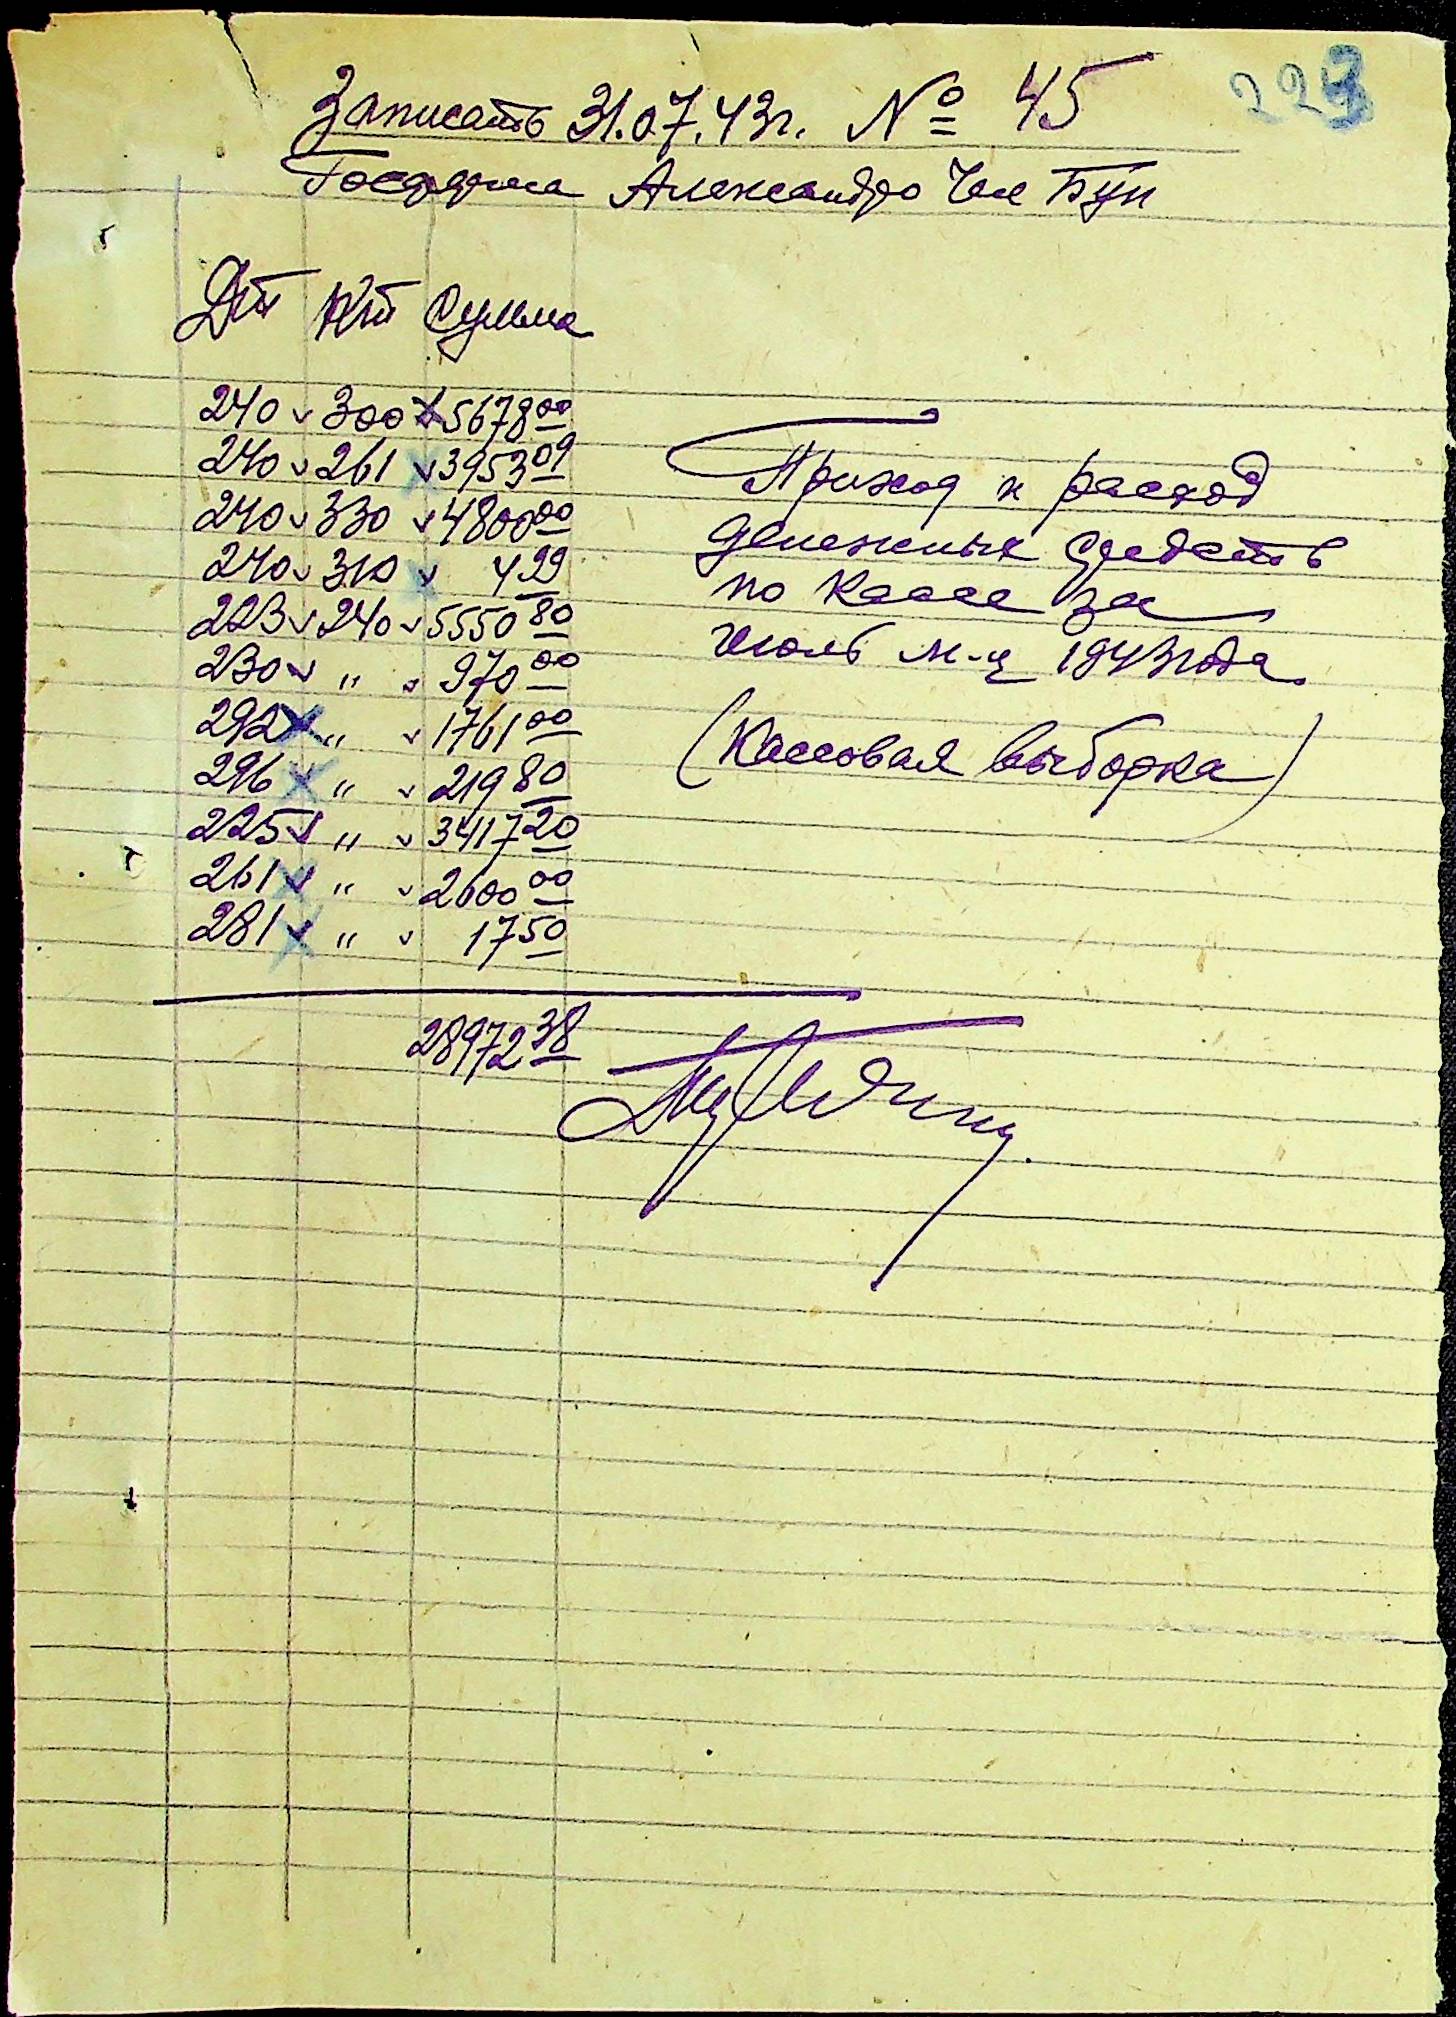 Записать 31.07.43г. № 45
Александро
Дт Кт Сумма
240 300 5678 00
240 261 3953 09
240 330 4800 00
240 310 4 99
223 240 5550 80
230 " 970 00
292 " 1761 00
296 " 219 80
225 " 3417 20
261 " 2600 00
281 " 17 50
28972 38
Приход и расход
денежных средств
по кассе за
июль м-ц 1943 года.
(Кассовая выборка)